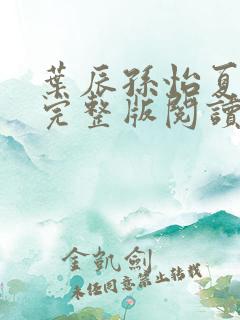 葉辰孫怡夏
完整版閱讀
金凱劍
未經同意禁止轉載